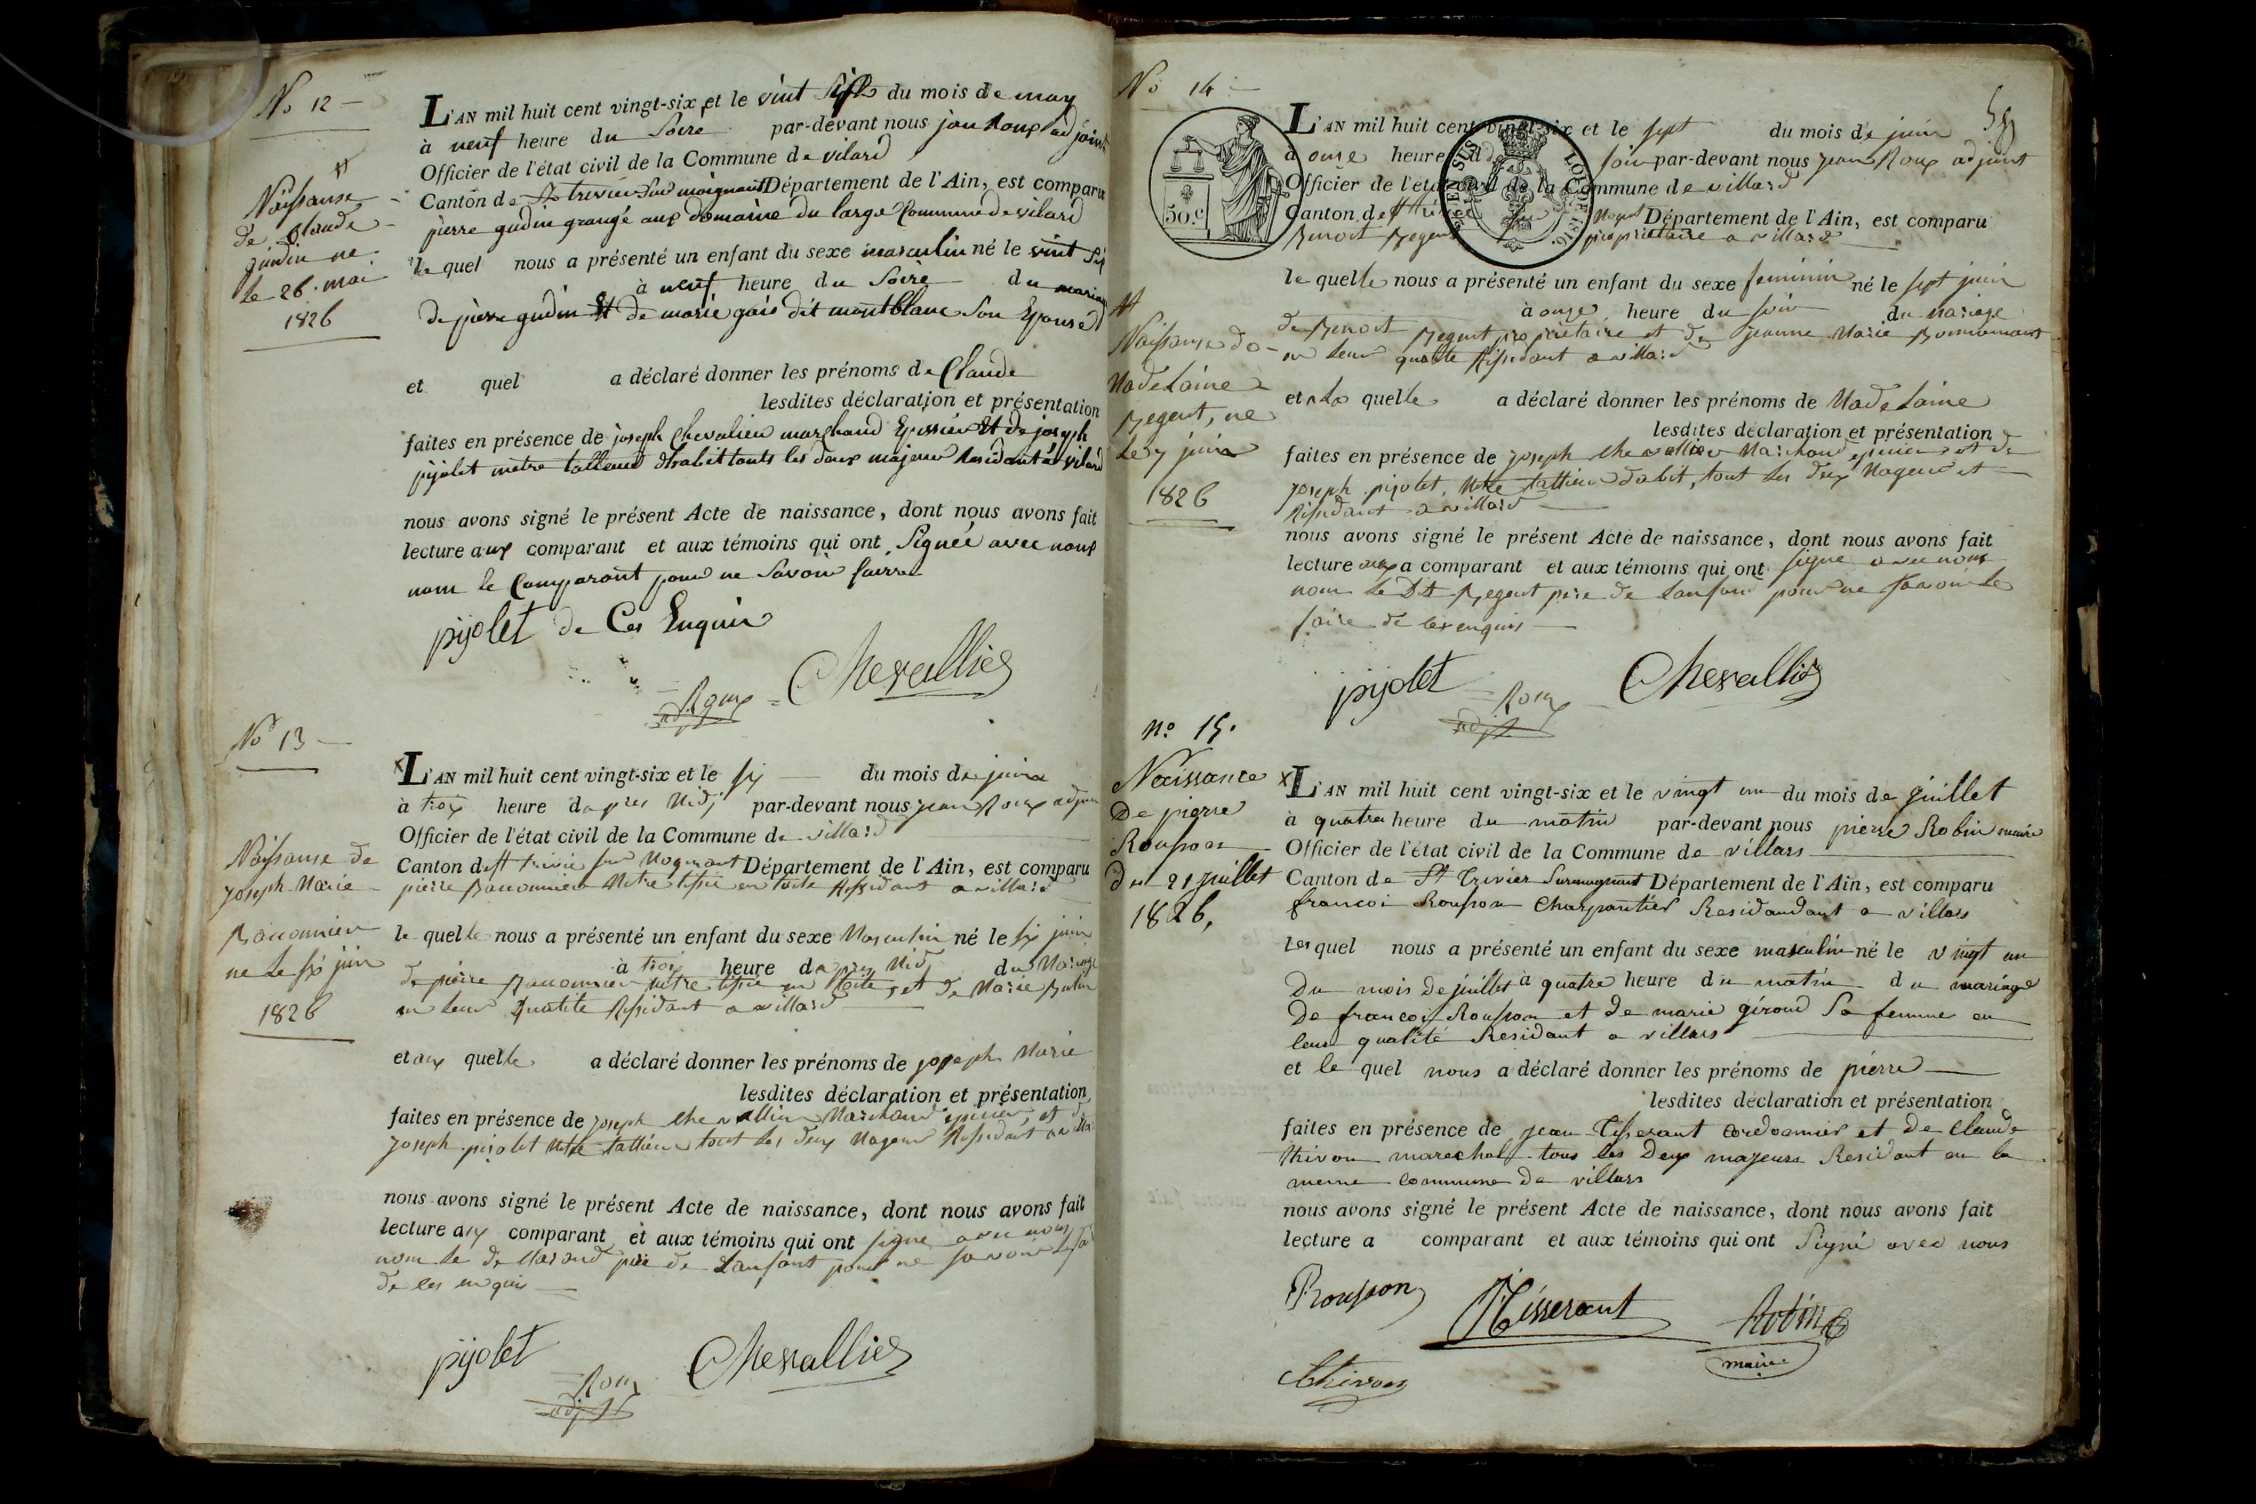 No 12 —
Naissanse
de Claude
gudin ne
le 26 mai
1826
L'AN mil huit cent vingt-six et le vint du mois de may
à neuf heure du Soire par-devant nous jan Roux adjoint
Officier de l'état civil de la Commune de vilard
Canton de St trivier Sud moignant Département de l'Ain, est comparu
pierre gudin grangé aux domaine du large Commune de vilard
le quel nous a présenté un enfant du sexe masculin né le vint
à neuf heure du Soire du mariage
de pierre gudin Et de marie gais dit montblanc Son Epouse
et quel a déclaré donner les prénoms de Claude
lesdites déclaration et présentation
faites en présence de joseph Chevalier marchand Epissier Et de joseph
pijolet metre talleur dhabit touts les deux majeur Residant a vilard
nous avons signé le présent Acte de naissance, dont nous avons fait
lecture aux comparant et aux témoins qui ont Signée avec nous
nom le Comparant pour ne Savoir fairre
de Ces Enquir
pijolet
Roux
adjt
Chevallier
No 13 —
Naissanse de
Joseph Marie
ne le six juin
1826
L'AN mil huit cent vingt-six et le six du mois de juin
à trois heure de pres Midi par-devant nous jean Roux adjoint
Officier de l'état civil de la Commune de villard
Canton de St trivier sur Mognant Département de l'Ain, est comparu
pierre Metre tissie en toile Residant a villard
le quelle nous a présenté un enfant du sexe Masculin né le six juin
à trois heure da pres Midi du Mariage
de pierre metre tissie en toile, et de Marie
en leur qualite Residant a villard
et aux quelle a déclaré donner les prénoms de joseph Marie
lesdites déclaration et présentation
faites en présence de joseph Chevallier Marchand epicier, et de
Joseph pijolet Metre tallieur tout les deux Mageur Residant a villa
nous avons signé le présent Acte de naissance, dont nous avons fait
lecture aux comparant et aux témoins qui ont signe avec nous
nom le pere de Lanfant pour ne savoir
de les enquis
pijolet
Roux
adjt
Chevallier
No 14
50 c
EN SUS
LOI DE 1816
Naissanse de
Madelaine
Regent, ne
Le 7 juin
1826
L'AN mil huit cent vingt-six et le sept du mois de juin
à onse heure du soir par-devant nous jean Roux adjoint
Officier de l'état civil de la Commune de villard
Canton de St Département de l'Ain, est comparu
Benoit Regent propriétaire a villard
le quelle nous a présenté un enfant du sexe feminin né le sept juin
à onze heure du soir du Mariage
de Benoit Regent propriétaire et de jeanne Marie
en leur qualite Residant a villard
et a La quelle a déclaré donner les prénoms de Madelaine
lesdites déclaration et présentation
faites en présence de joseph Chevallier Marchand epicier et de
Joseph pijolet, Metre tallieur dabit, tout les deux Mageur et
Residant a villard
nous avons signé le présent Acte de naissance, dont nous avons fait
lecture aux a comparant et aux témoins qui ont signe avec nous
nom le Dit Regent pere de Lanfant pour ne savoir le
faire de les enquis
pijolet
Roux
adjt
Chevallier
no 15.
Naissance
De pierre
Rousson
du 21 juillet
1826,
L'AN mil huit cent vingt-six et le vingt un du mois de juillet
à quatre heure du matin par-devant nous pierre Robin maire
Officier de l'état civil de la Commune de villars
Canton de St Trivier Surmognant Département de l'Ain, est comparu
francoi Rousson Charpantier Residandant a villars
les quel nous a présenté un enfant du sexe masculin né le vingt un
Du mois De juillet à quatre heure du matin du mariage
De francois Rousson et de marie giroud Sa femme en
leur qualité Residant a villars
et le quel nous a déclaré donner les prénoms de pierre
lesdites déclaration et présentation
faites en présence de jean Tisserant cordonnier et de Claude
thivon marechal tous les Deux majeurs Residant en la
meme commune de villars
nous avons signé le présent Acte de naissance, dont nous avons fait
lecture a comparant et aux témoins qui ont Signé avec nous
Rousson
Tisserant
Robin
maire
Thivon